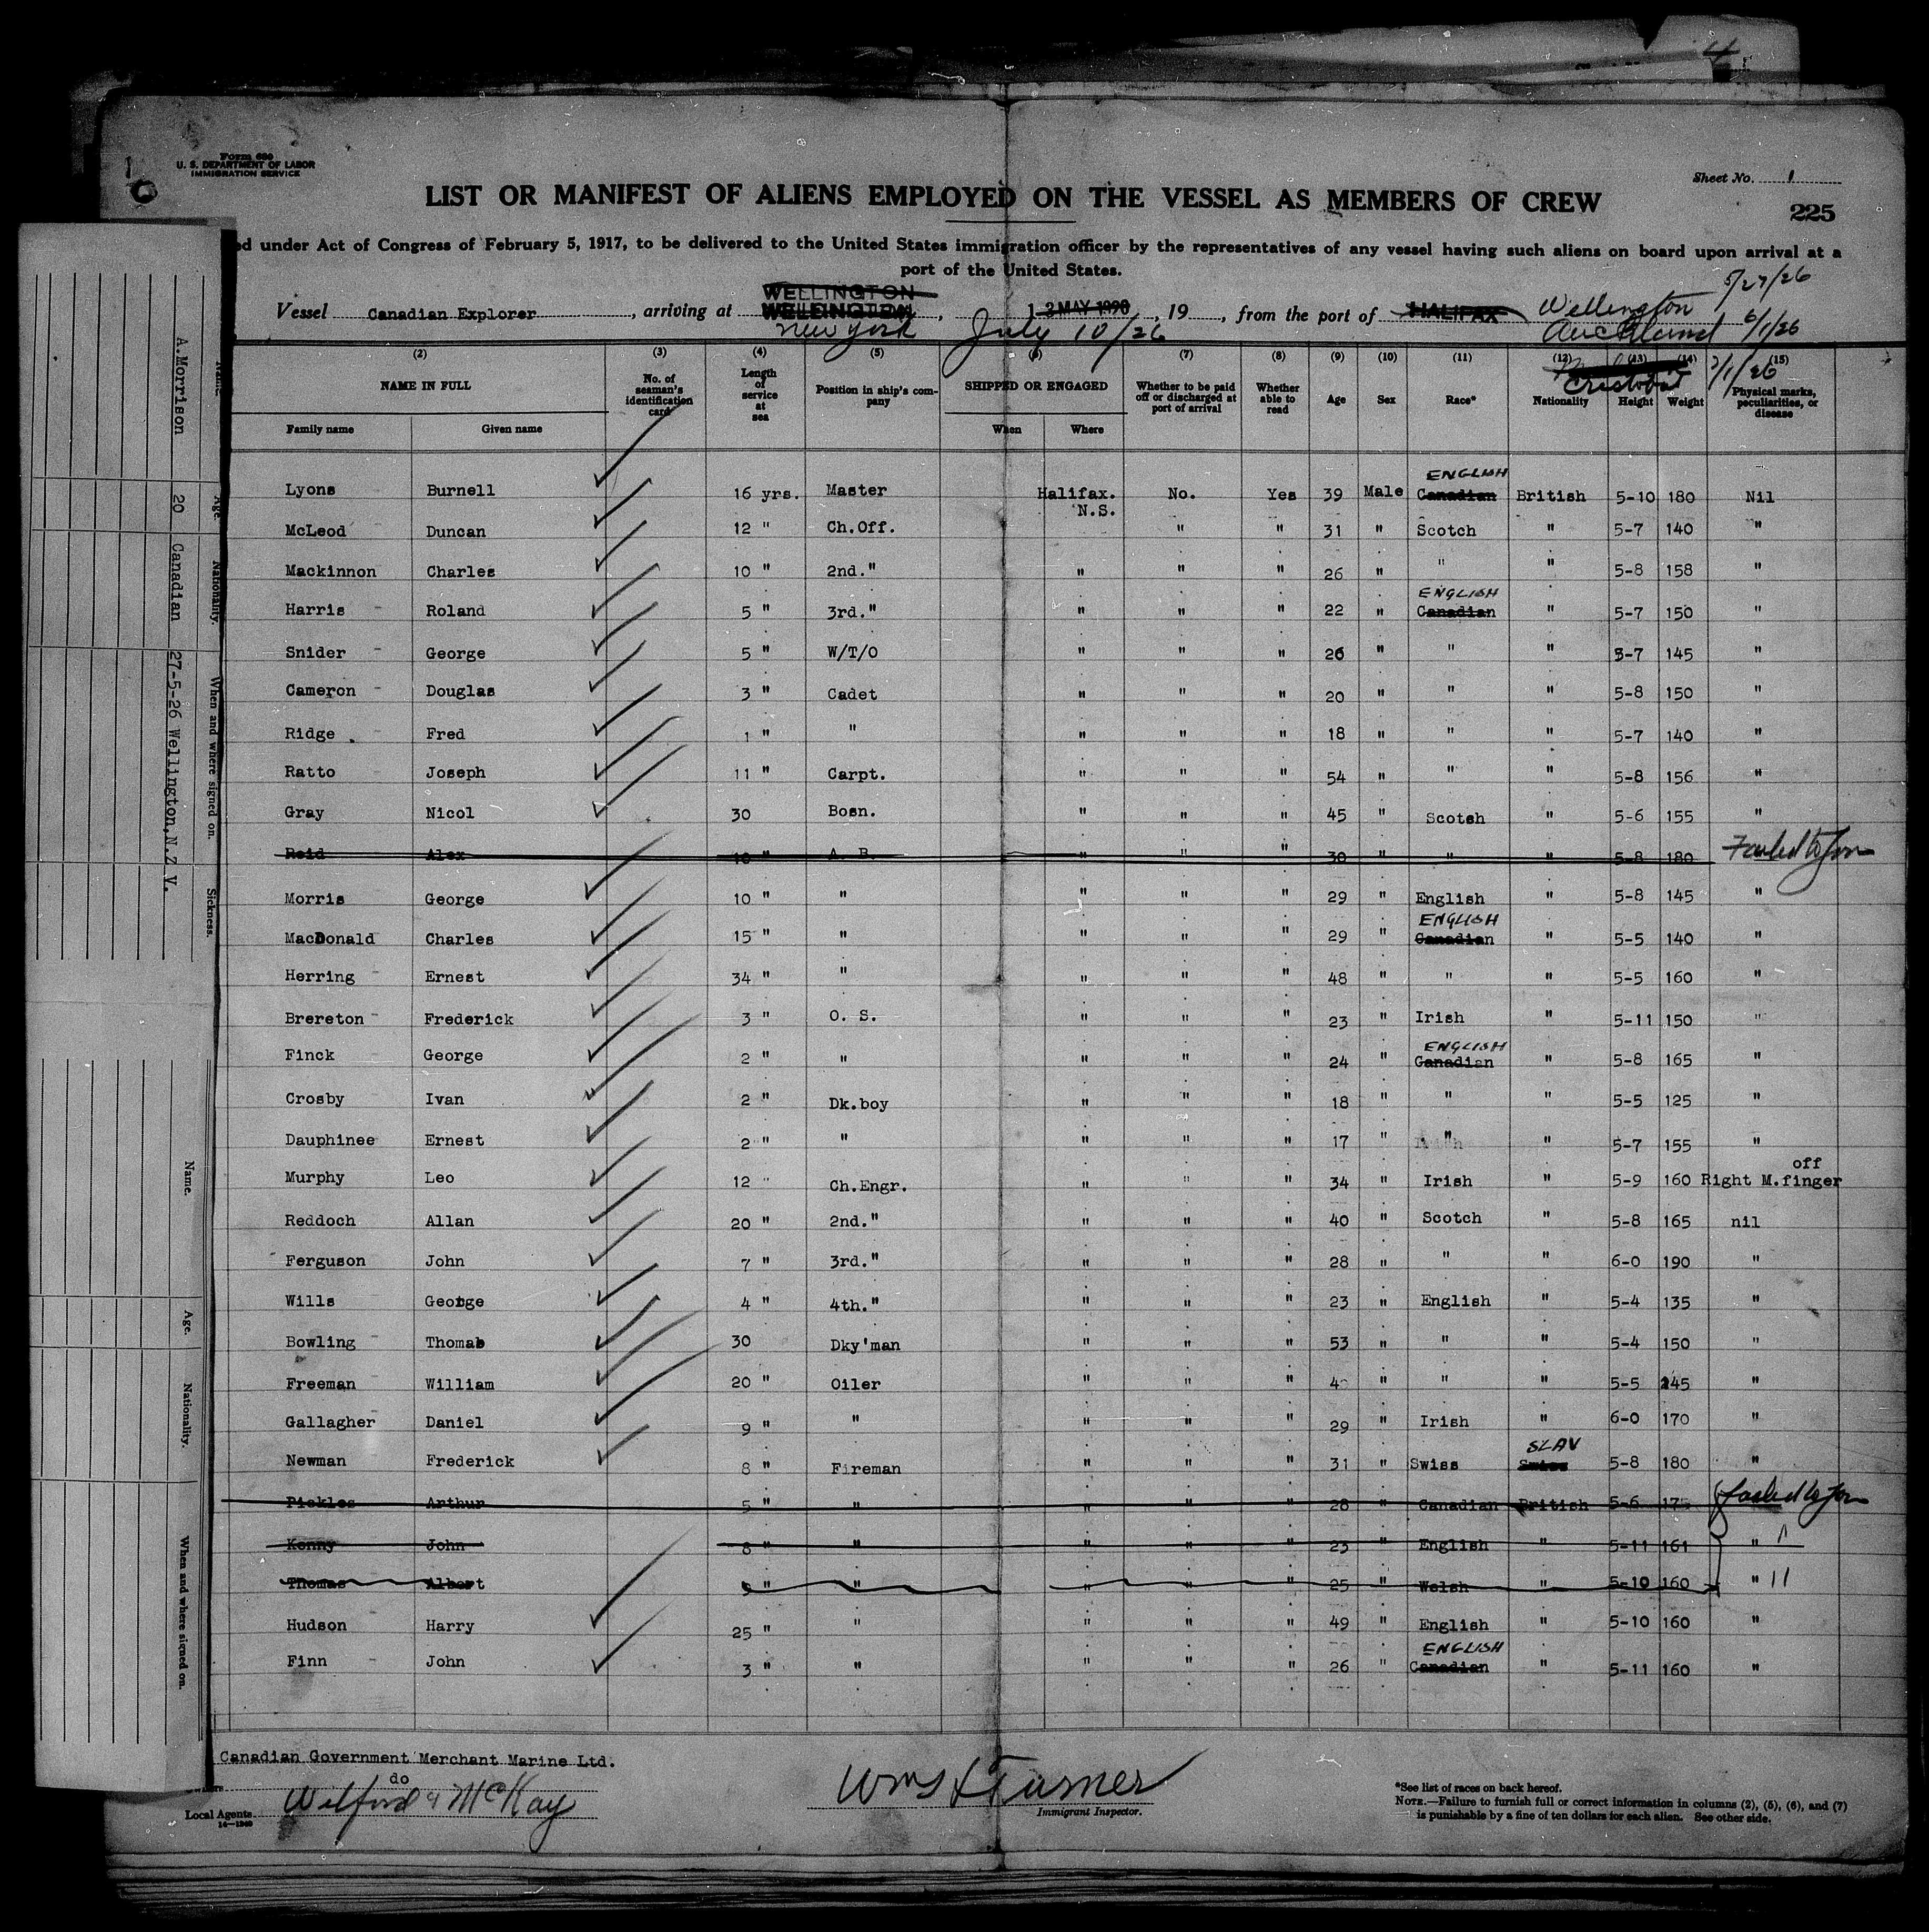 Form 680
U. S. DEPARTMENT OF LABOR
IMMIGRATION SERVICE
Sheet No. 1
LIST OR MANIFEST OF ALIENS EMPLOYED ON THE VESSEL AS MEMBERS OF CREW
225
ed under Act of Congress of February 5, 1917, to be delivered to the United States immigration officer by the representatives of any vessel having such aliens on board upon arrival at a
port of the United States.
5/27/26
WELLINGTON
Vessel Canadian Explorer, arriving at WELLINGTON, 1 3 MAY 19, 19, from the port of HALIFAX Wellington
New York July 10/26 Auckland 6/1/26
Cristobal 7/1/26
(2) (3) (4) (5) (6) (7) (8) (9) (10) (11) (12) (13) (14) (15)
NAME IN FULL
Family name Given name
No. of seaman's identification card
Length of service at sea
Position in ship's company
SHIPPED OR ENGAGED
When Where
Whether to be paid off or discharged at port of arrival
Whether able to read
Age
Sex
Race*
Nationality
Height
Weight
Physical marks, peculiarities, or disease
ENGLISH
Lyons Burnell 16 yrs. Master Halifax. No. Yes 39 Male Canadian British 5-10 180 Nil
N.S.
McLeod Duncan 12 " Ch.Off. " " 31 " Scotch " 5-7 140 "
Mackinnon Charles 10 " 2nd." " " " 26 " " " 5-8 158 "
ENGLISH
Harris Roland 5 " 3rd." " " " 22 " Canadian " 5-7 150 "
Snider George 5 " W/T/O " " " 26 " " " 5-7 145 "
Cameron Douglas 3 " Cadet " " " 20 " " " 5-8 150 "
Ridge Fred 1 " " " " " 18 " " " 5-7 140 "
Ratto Joseph 11 " Carpt. " " " 54 " " " 5-8 156 "
Gray Nicol 30 Bosn. " " " 45 " Scotch " 5-6 155 "
Reid Alex 10 " A. B. " " " 30 " " " 5-8 180 Failed to Join
Morris George 10 " " " " " 29 " English " 5-8 145 "
ENGLISH
MacDonald Charles 15 " " " " " 29 " Canadian " 5-5 140 "
Herring Ernest 34 " " " " " 48 " " " 5-5 160 "
Brereton Frederick 3 " O. S. " " " 23 " Irish " 5-11 150 "
ENGLISH
Finck George 2 " " " " " 24 " Canadian " 5-8 165 "
Crosby Ivan 2 " Dk.boy " " " 18 " " " 5-5 125 "
Dauphinee Ernest 2 " " " " " 17 " " " 5-7 155 "
off
Murphy Leo 12 " Ch.Engr. " " " 34 " Irish " 5-9 160 Right M.finger
Reddoch Allan 20 " 2nd." " " " 40 " Scotch " 5-8 165 nil
Ferguson John 7 " 3rd." " " " 28 " " " 6-0 190 "
Wills George 4 " 4th." " " " 23 " English " 5-4 135 "
Bowling Thomas 30 Dky'man " " " 53 " " " 5-4 150 "
Freeman William 20 " Oiler " " " " " " 5-5 145 "
Gallagher Daniel 9 " " " " " 29 " Irish " 6-0 170 "
SLAV
Newman Frederick 8 " Fireman " " " 31 " Swiss Swiss 5-8 180 "
Pickles Arthur 5 " " " " " 28 " Canadian British 5-6 Failed to Join
Kenny John 8 " " " " " 23 " English " 5-11 161 " "
Thomas Albert " " " " " 25 " Welsh " 5-10 160 " "
Hudson Harry 25 " " " " " 49 " English " 5-10 160 "
ENGLISH
Finn John 3 " " " " " 26 " Canadian " 5-11 160 "
Canadian Government Merchant Marine Ltd.
do
Local Agents Wilford & McKay
14—1949
Wm J Turner
Immigrant Inspector.
*See list of races on back hereof.
NOTE.—Failure to furnish full or correct information in columns (2), (5), (6), and (7)
is punishable by a fine of ten dollars for each alien. See other side.
Name. Age. Nationality. When and where signed on. Sickness.
A.Morrison 20 Canadian 27-5-26 Wellington,N.Z V.
Name. Age. Nationality. When and where signed on.